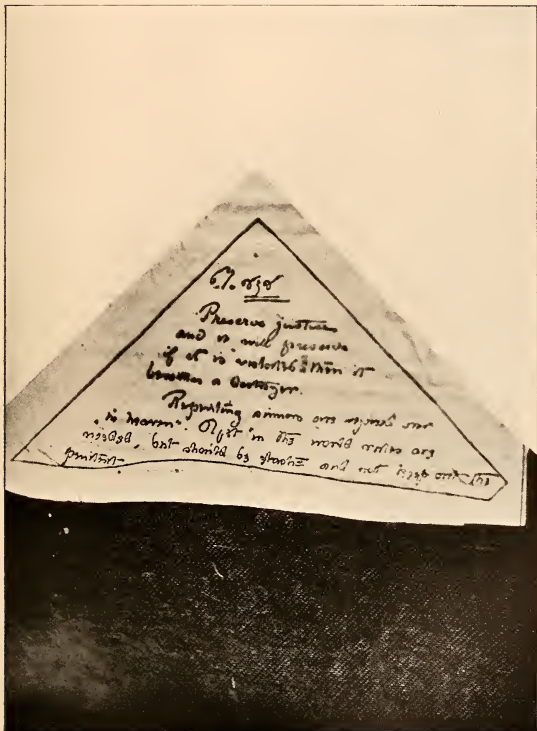 Preserve justice
and it will preserve
if it is violated then it
becomes a destroyer.
Repenting sinners are
in heaven in the world rules are
needed, but should be elastic and not the